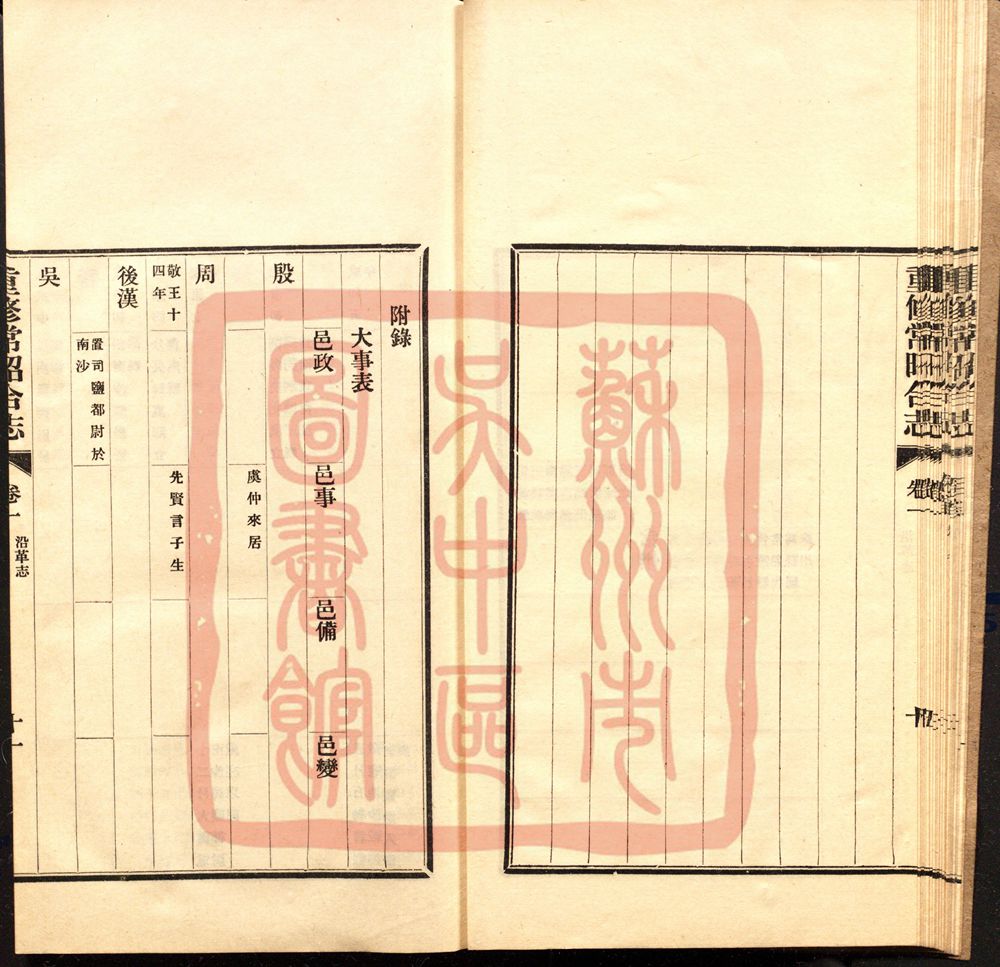 重修常昭合志
卷一
十
附錄
大事表
邑政
邑事
邑備
邑變
殷
虞仲來居
周
敬王十四年
先賢言子生
後漢
置司鹽都尉於
南沙
吳
重修常昭合志
卷一
沿革志
十一
蘇州市
吳中區
圖書館